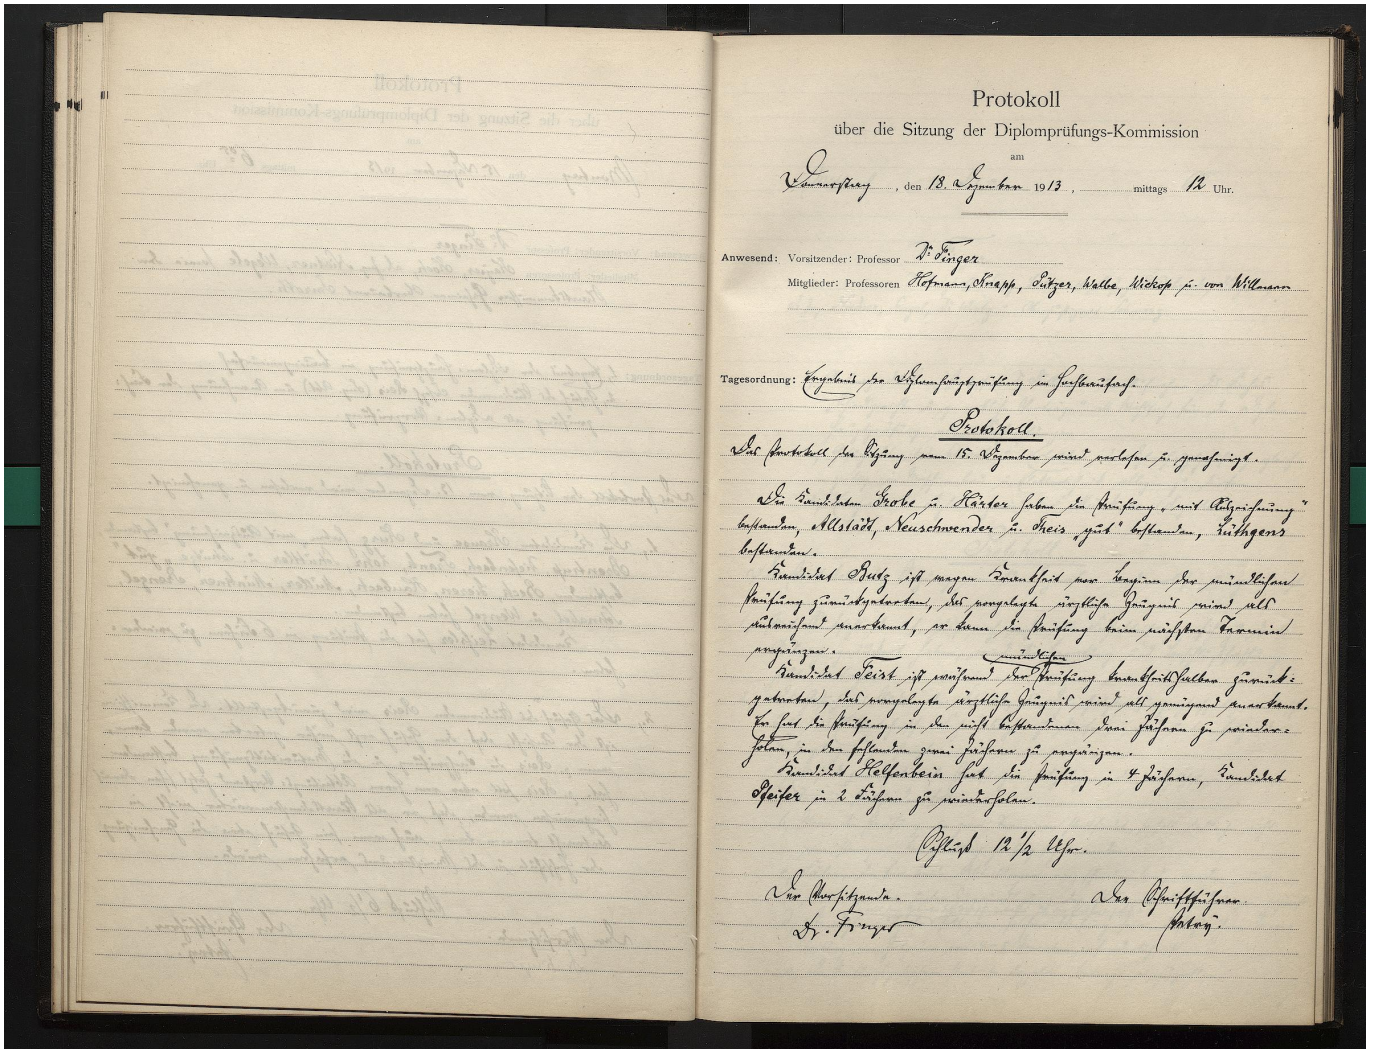 Protokoll
über die Sitzung der Diplomprüfungs-Kommission
am
Donnerstag, den 18. Dezember 1913, mittags 12 Uhr.
Anwesend: Vorsitzender: Professor Dr. Finger
Mitglieder: Professoren Hofmann, Knapp, Pützer, Walbe, Wickop u. von Willmann
Tagesordnung: Ergebnis der Diplomhauptprüfung im Hochbaufach.
Protokoll.
Das Protokoll der Sitzung vom 15. Dezember wird verlesen u. genehmigt.
Die Kandidaten Grobe u. Härter haben die Prüfung „mit Auszeichnung"
bestanden, Allstädt, Neuschwender u. Theis „gut" bestanden, Lüthgens
bestanden.
Kandidat Butz ist wegen Krankheit vor Beginn der mündlichen
Prüfung zurückgetreten, das vorgelegte ärztliche Zeugnis wird als
ausreichend anerkannt, er kann die Prüfung beim nächsten Termin
ergänzen.
Kandidat Feist ist während der mündlichen Prüfung krankheitshalber zurück=
getreten, das vorgelegte ärztliche Zeugnis wird als genügend anerkannt.
Er hat die Prüfung in den nicht bestandenen drei Fächern zu wieder=
holen, in den fehlenden zwei Fächern zu ergänzen.
Kandidat Helfenbein hat die Prüfung in 4 Fächern, Kandidat
Pfeifer in 2 Fächern zu wiederholen.
Schluß 12 1/2 Uhr.
Der Vorsitzende. Der Schriftführer.
Dr. Finger Petry.